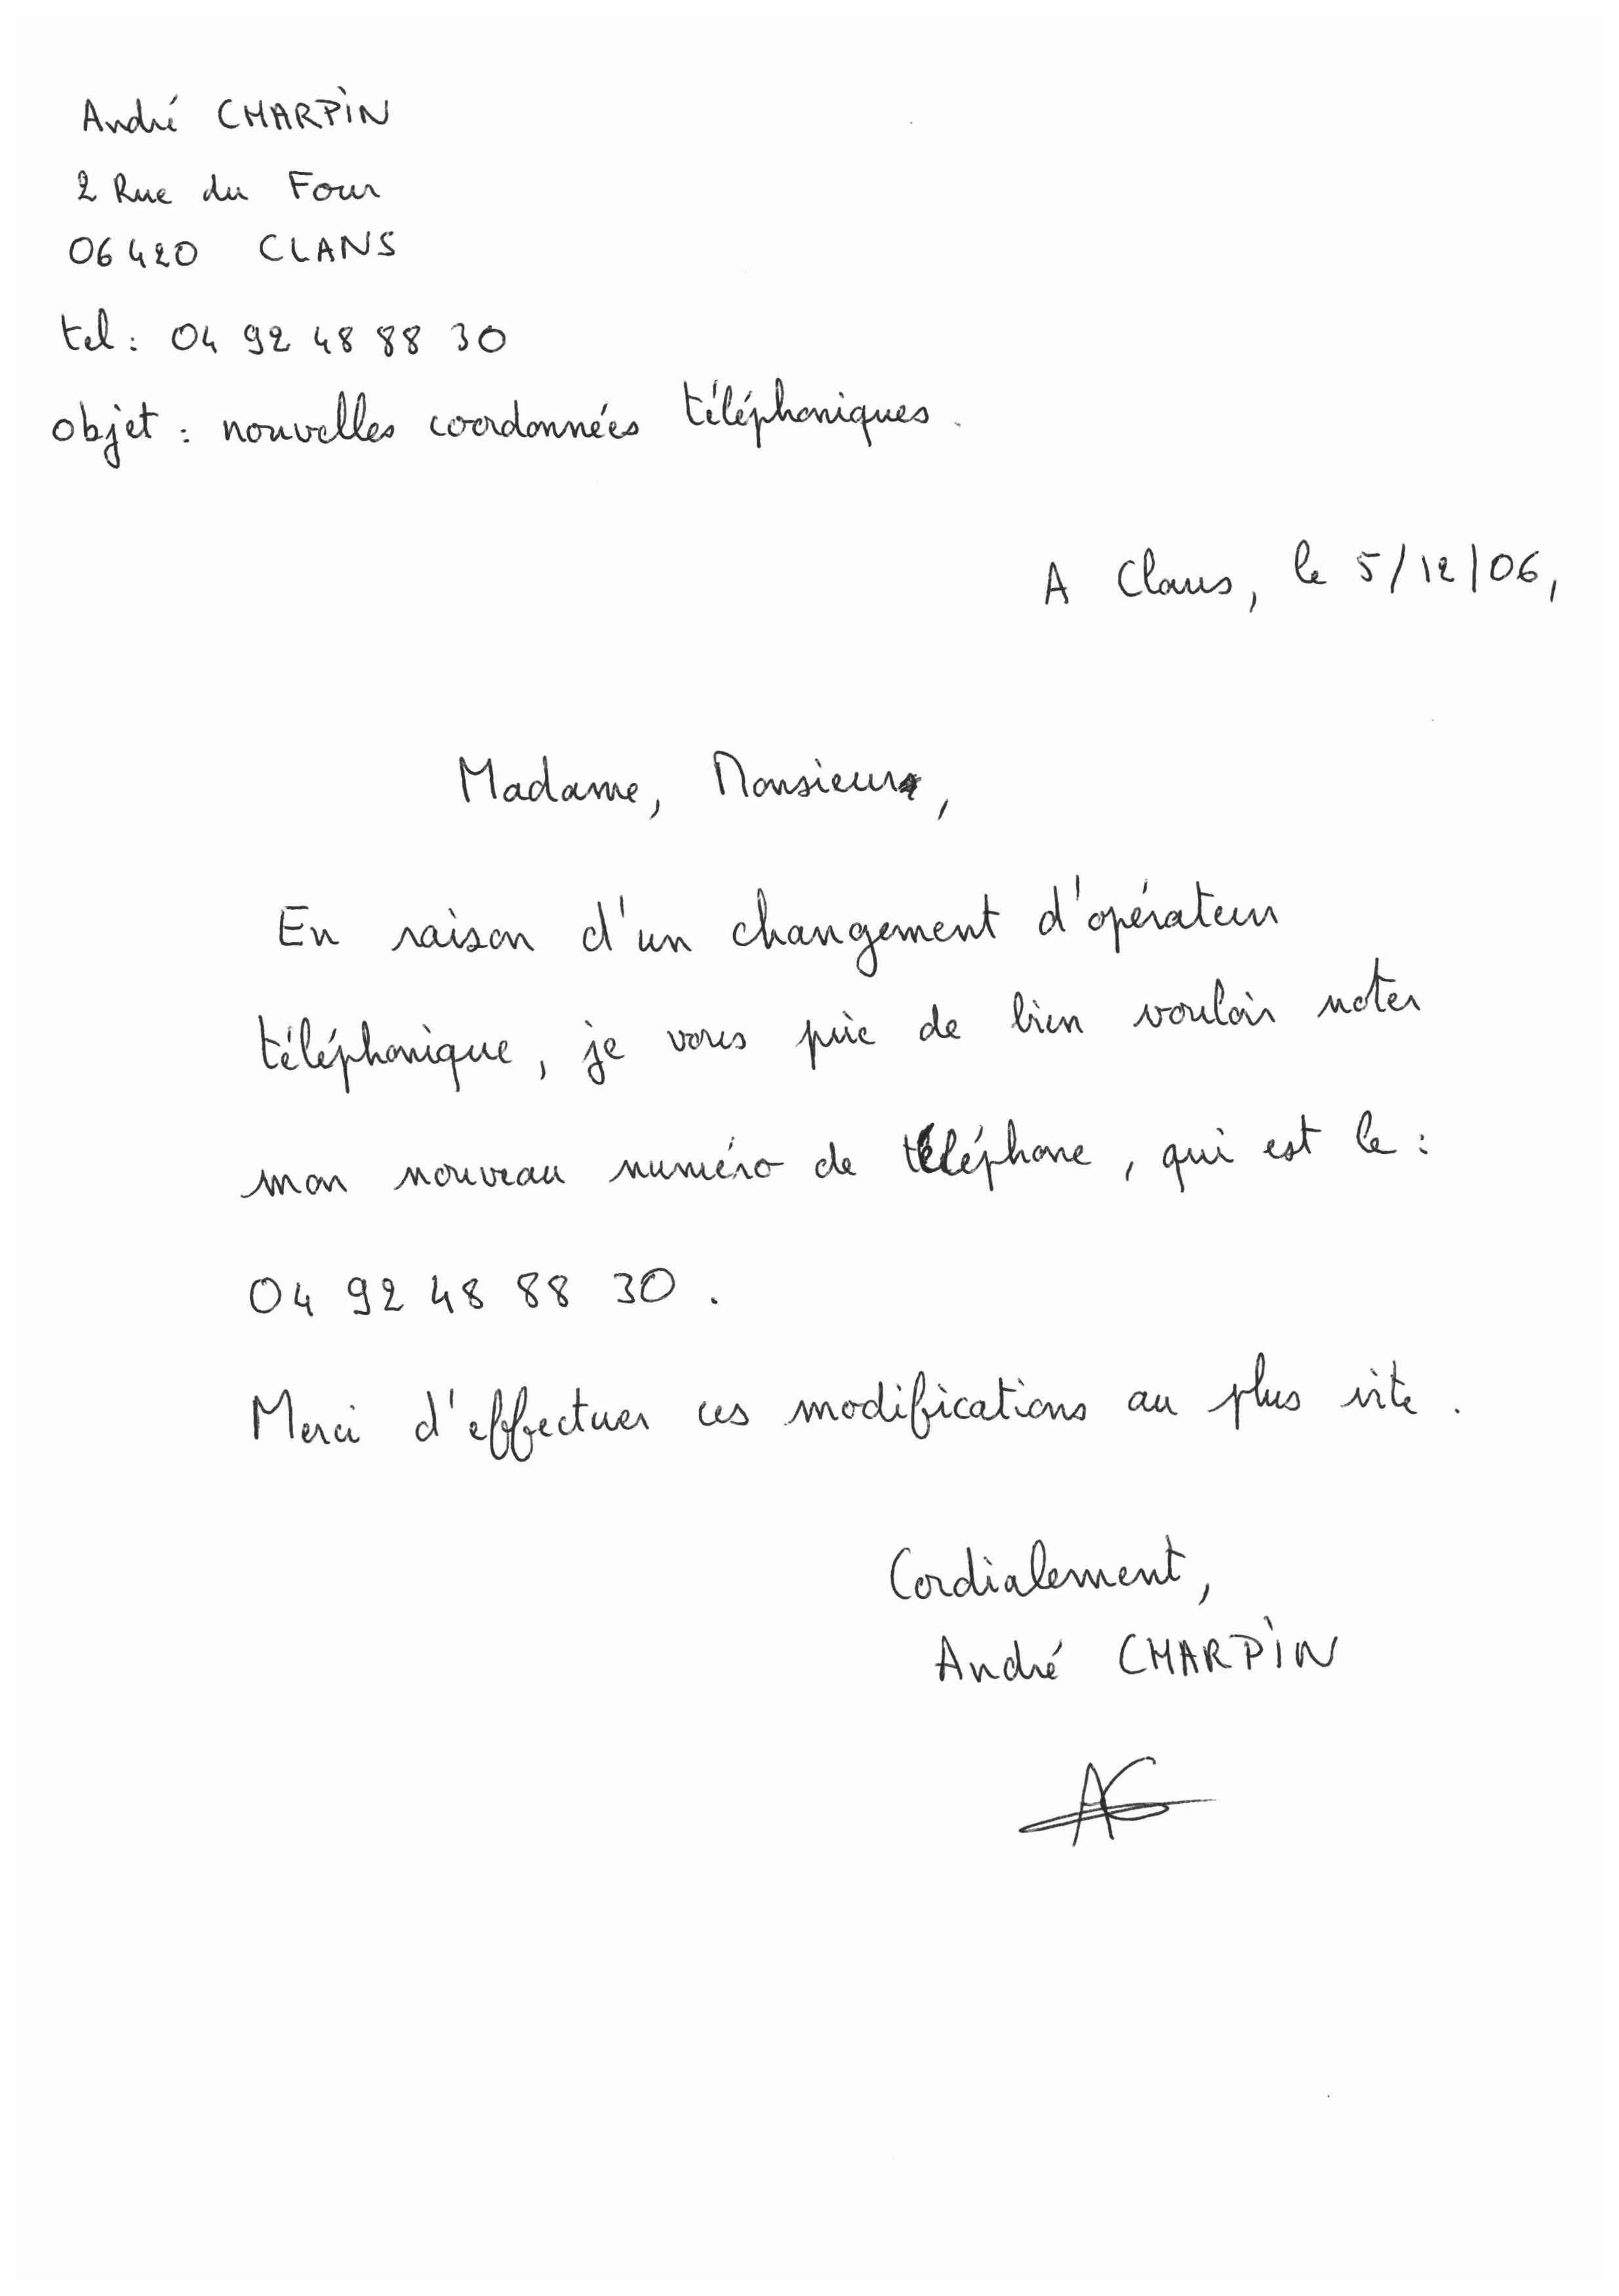 André CHARPIN
2 Rue du Four
06420 CLANS
tel : 04 92 48 88 30
objet : nouvelles coordonnées téléphoniques.
A Clans, le 5/12/06,
Madame, Monsieur,
En raison d'un changement d'opérateur
téléphonique, je vous prie de bien vouloir noter
mon nouveau numéro de téléphone, qui est le :
04 92 48 88 30.
Merci d'effectuer ces modifications au plus vite.
Cordialement,
André CHARPIN
AC